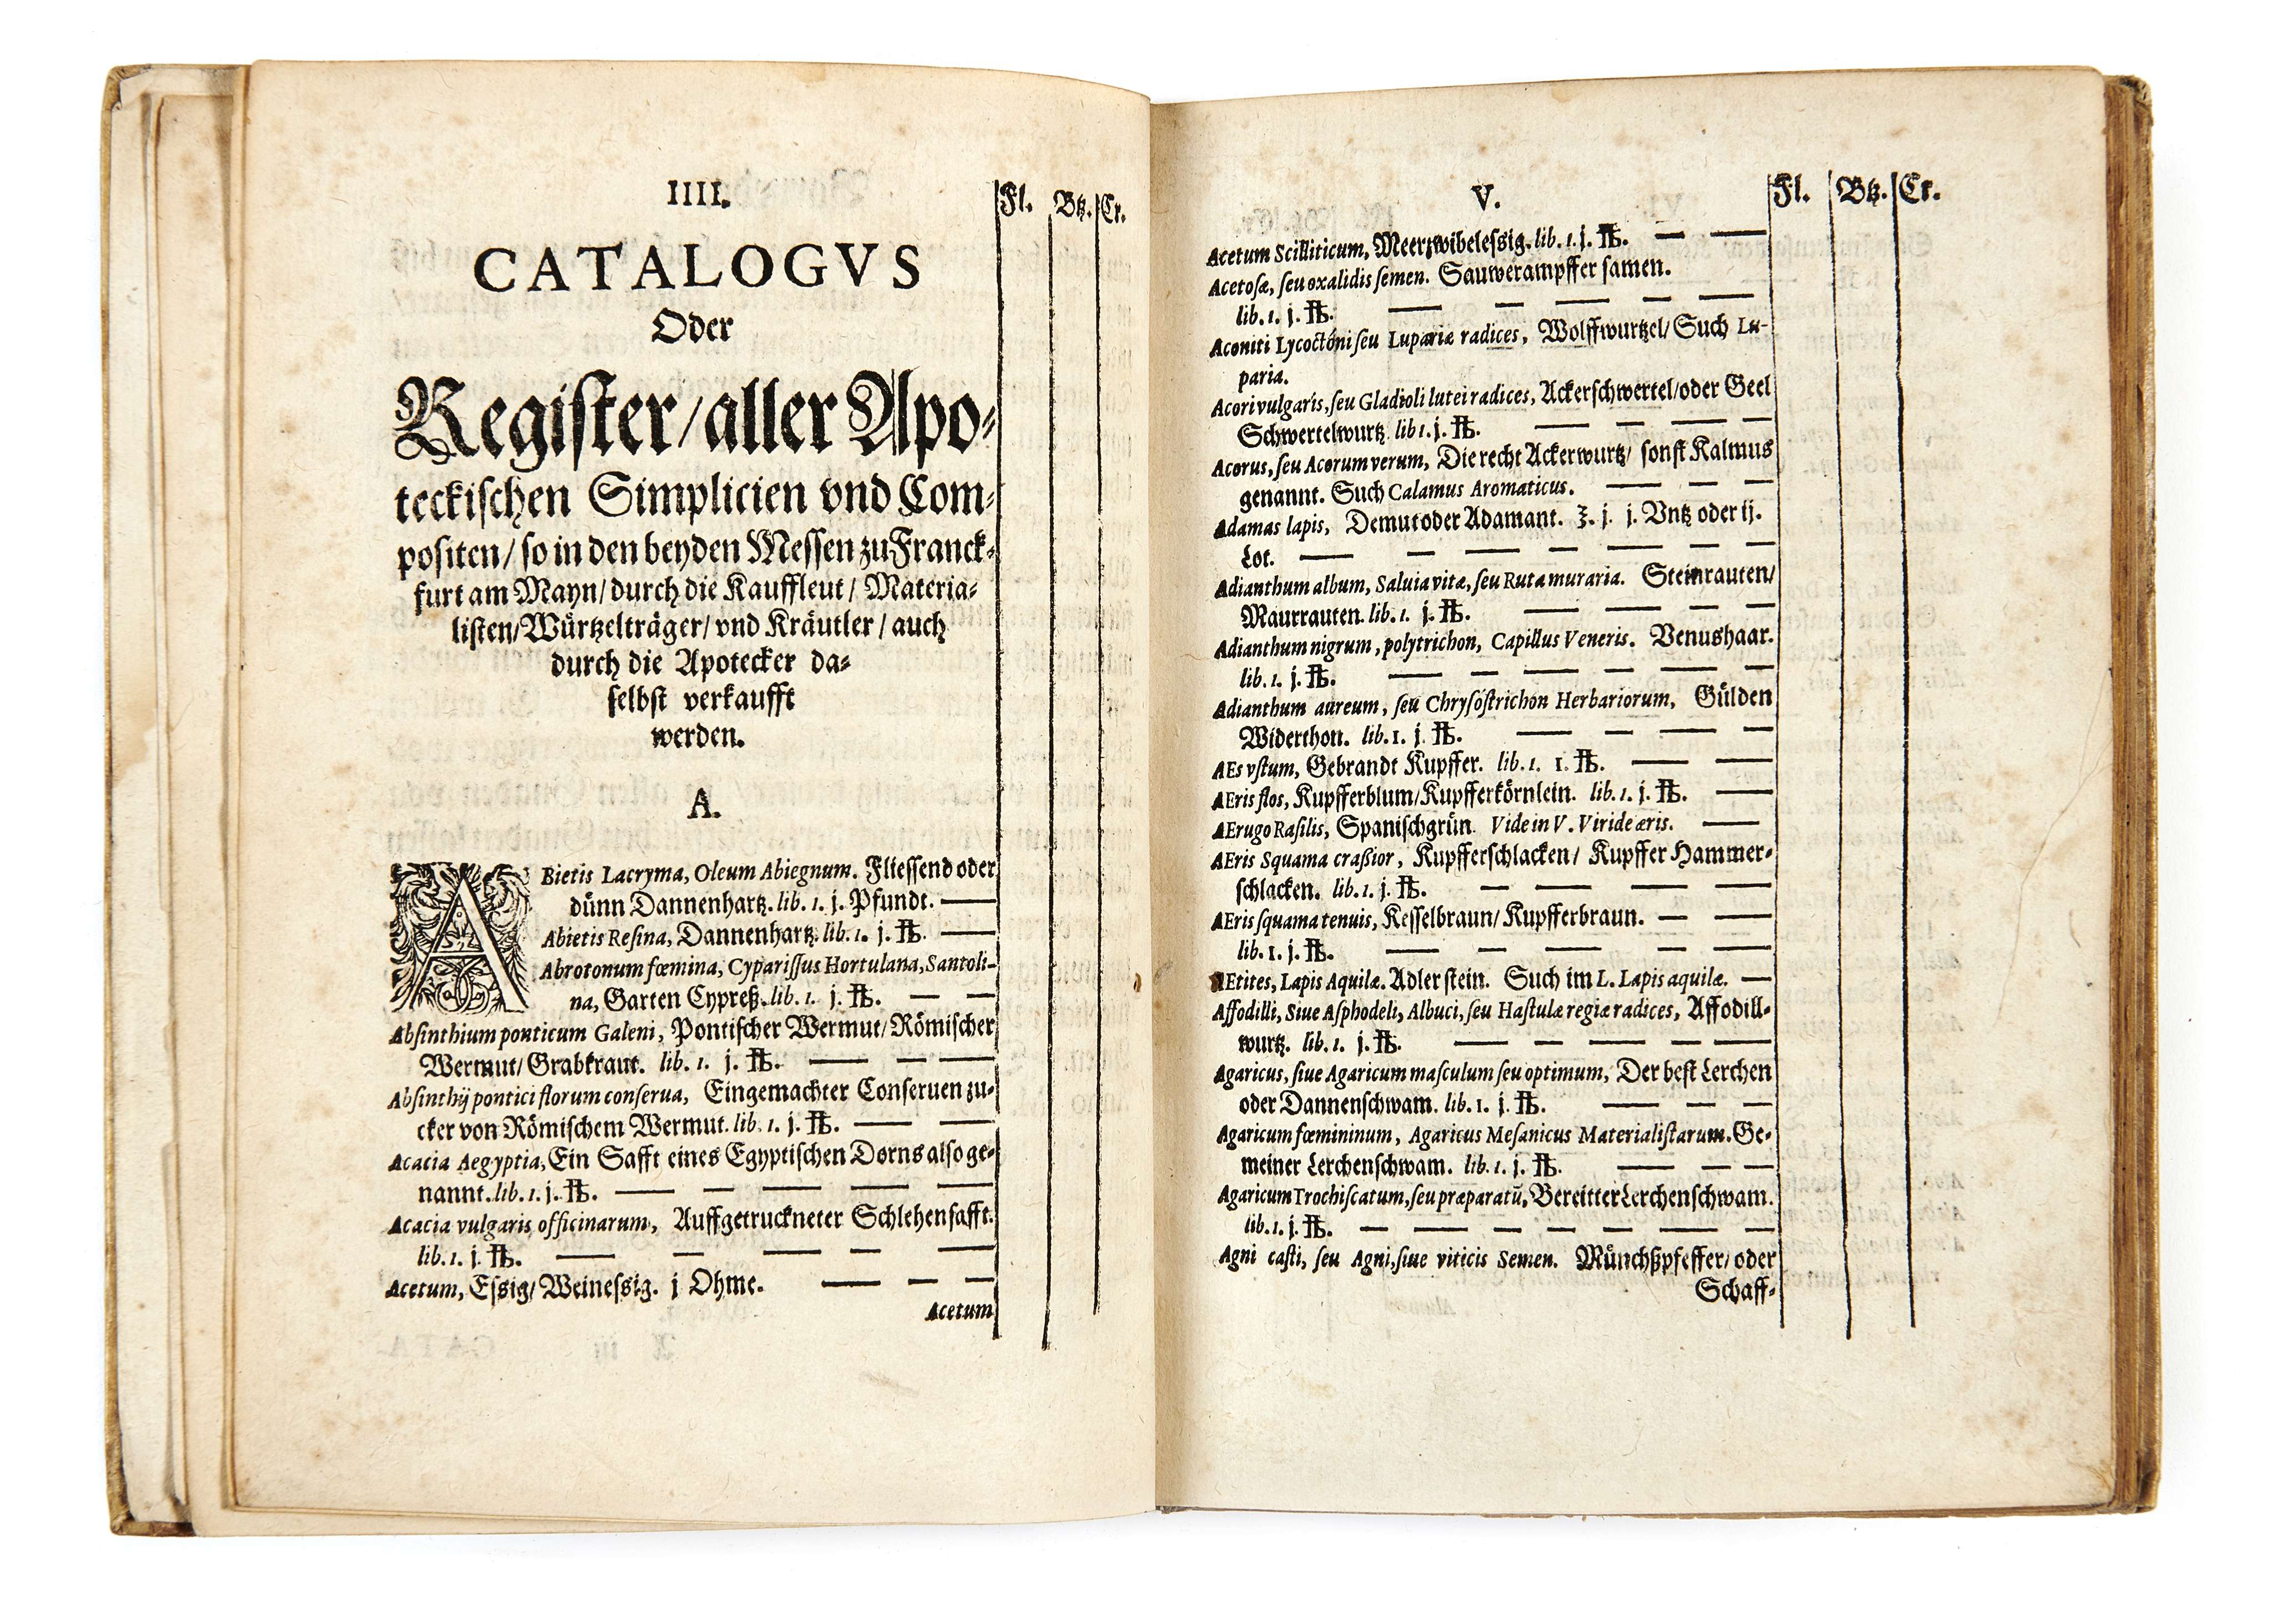 IIII.
Fl. Btz. Cr.
CATALOGVS
Oder
Register/aller Apo-
teckischen Simplicien vnd Com-
positen/ so in den beyden Messen zu Franck-
furt am Mayn/ durch die Kauffleut/ Materia-
listen/Würtzelträger/ vnd Kräutler/ auch
durch die Apotecker da-
selbst verkaufft
werden.
A.
ABietis Lacryma, Oleum Abiegnum. Fliessend oder
dünn Dannenhartz. lib. 1. j. Pfundt. —
Abietis Resina, Dannenhartz. lib. 1. j. ℔. —
Abrotonum fœmina, Cyparissus Hortulana, Santoli-
na, Garten Cypreß. lib. 1. j. ℔. — —
Absinthium ponticum Galeni, Pontischer Wermut/ Römischer
Wermut/ Grabkraut. lib. 1. j. ℔. — — —
Absinthij pontici florum conserua, Eingemachter Conseruen zu-
cker von Römischem Wermut. lib. 1. j. ℔. — —
Acacia Aegyptia, Ein Safft eines Egyptischen Dorns also ge-
nannt. lib. 1. j. ℔. — — — — —
Acacia vulgaris officinarum, Auffgetruckneter Schlehensafft.
lib. 1. j. ℔. — — — — —
Acetum, Essig/ Weinessig. j Ohme. — — —
Acetum
V.
Fl. Btz. Cr.
Acetum Scilliticum, Meerzwibelessig. lib. 1. j. ℔. — —
Acetosæ, seu oxalidis semen. Sauwerampffer samen.
lib. 1. j. ℔. — — — — —
Aconiti Lycoctóni seu Lupariæ radices, Wolffwurtzel/ Such Lu-
paria.
Acori vulgaris, seu Gladioli lutei radices, Ackerschwertel/oder Geel
Schwertelwurtz. lib 1. j. ℔. — — — —
Acorus, seu Acorum verum, Die recht Ackerwurtz/ sonst Kalmus
genannt. Such Calamus Aromaticus. — — —
Adamas lapis, Demut oder Adamant. ℥. j. j. Vntz oder ij.
Lot. — — — — — — —
Adianthum album, Saluia vitæ, seu Ruta muraria. Steinrauten/
Maurrauten. lib. 1. j. ℔. — — — —
Adianthum nigrum, polytrichon, Capillus Veneris. Venushaar.
lib. 1. j. ℔. — — — — — —
Adianthum aureum, seu Chrysóstrichon Herbariorum, Gülden
Widerthon. lib. 1. j. ℔. — — — —
AEs vstum, Gebrandt Kupffer. lib. 1. 1. ℔. — —
AEris flos, Kupfferblum/Kupfferkörnlein. lib. 1. j. ℔. —
AErugo Rasilis, Spanischgrün. Vide in V. Viride æris. —
AEris Squama craßior, Kupfferschlacken/ Kupffer Hammer-
schlacken. lib. 1. j. ℔. — — — —
AEris squama tenuis, Kesselbraun/ Kupfferbraun. — —
lib. 1. j. ℔. — — — — —
AEtites, Lapis Aquilæ. Adlerstein. Such im L. Lapis aquilæ. —
Affodilli, Siue Asphodeli, Albuci, seu Hastulæ regiæ radices, Affodill-
wurtz. lib. 1. j. ℔. — — — — —
Agaricus, siue Agaricum masculum seu optimum, Der best Lerchen
oder Dannenschwam. lib. 1. j. ℔. — — —
Agaricum fœmininum, Agaricus Mesanicus Materialistarum. Ge-
meiner Lerchenschwam. lib. 1. j. ℔. — — —
Agaricum Trochiscatum, seu præparatũ, Bereitter Lerchenschwam.
lib. 1. j. ℔. — — — — — — — —
Agni casti, seu Agni, siue viticis Semen. Münchßpfeffer/ oder
Schaff-